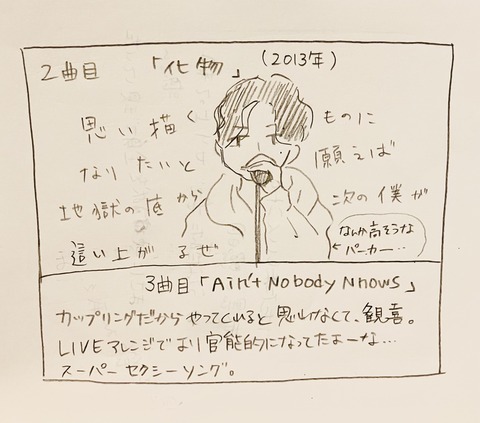 2曲目 「化物」 (2013年)
思い描く ものに
なりたいと 願えば
地獄の底から 次の僕が
這い上がるぜ
なんか高そうな
パーカー…
3曲目「Ain't Nobody Knows」
カップリングだからやってくれると思わなくて、観喜。
LIVEアレンジでより官能的になってたなーな…
スーパーセクシーソング。